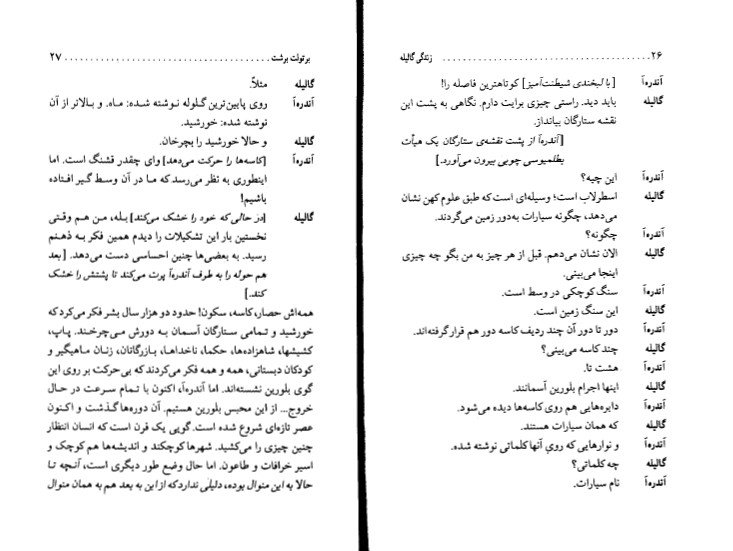 ۲۶ ........................................ زندگی گالیله
آندره‌آ [با لبخندی شیطنت‌آمیز] کوتاهترین فاصله را!
گالیله باید دید. راستی چیزی برایت دارم. نگاهی به پشت این
نقشه ستارگان بیانداز.
[آندره‌آ از پشت نقشه‌ی ستارگان یک هیأت
بطلمیوسی چوبی بیرون می‌آورد.]
آندره‌آ این چیه؟
گالیله اسطرلاب است؛ وسیله‌ای است که طبق علوم کهن نشان
می‌دهد، چگونه سیارات به‌دور زمین می‌گردند.
آندره‌آ چگونه؟
گالیله الان نشان می‌دهم. قبل از هر چیز به من بگو چه چیزی
اینجا می‌بینی.
آندره‌آ سنگ کوچکی در وسط است.
گالیله این سنگ زمین است.
آندره‌آ دور تا دور آن چند ردیف کاسه دور هم قرار گرفته‌اند.
گالیله چند کاسه می‌بینی؟
آندره‌آ هشت تا.
گالیله اینها اجرام بلورین آسمانند.
آندره‌آ دایره‌هایی هم روی کاسه‌ها دیده می‌شود.
گالیله که همان سیارات هستند.
آندره‌آ و نوارهایی که رویِ آنها کلماتی نوشته شده.
گالیله چه کلماتی؟
آندره‌آ نام سیارات.
برتولت برشت ........................................ ۲۷
گالیله مثلاً.
آندره‌آ روی پایین‌ترین گلوله نوشته شده: ماه. و بالاتر از آن
نوشته شده: خورشید.
گالیله و حالا خورشید را بچرخان.
آندره‌آ [کاسه‌ها را حرکت می‌دهد] وای چقدر قشنگ است. اما
اینطوری به نظر می‌رسد که ما در آن وسط گیر افتاده
باشیم!
گالیله [در حالی‌که خود را خشک می‌کند] بله، من هم وقتی
نخستین بار این تشکیلات را دیدم همین فکر به ذهنم
رسید. به بعضی‌ها چنین احساسی دست می‌دهد. [بعد
هم حوله را به طرف آندره‌آ پرت می‌کند تا پشتش را خشک
کند.]
همه‌اش حصار، کاسه، سکون! حدود دو هزار سال بشر فکر می‌کرد که
خورشید و تمامی ستارگان آسمان به دورش می‌چرخند. پاپ،
کشیشها، شاهزاده‌ها، حکما، ناخداها، بازرگانان، زنان ماهیگیر و
کودکان دبستانی، همه و همه فکر می‌کردند که بی‌حرکت بر روی این
گوی بلورین نشسته‌اند. اما آندره‌آ، اکنون با تمام سرعت در حال
خروج... از این محبس بلورین هستیم. آن دوره‌ها گذشت و اکنون
عصر تازه‌ای شروع شده است. گویی یک قرن است که انسان انتظار
چنین چیزی را می‌کشید. شهرها کوچکند و اندیشه‌ها هم کوچک و
اسیر خرافات و طاعون. اما حال وضع طور دیگری است، آنچه تا
حالا به این منوال بوده، دلیلی ندارد که از این به بعد هم به همان منوال